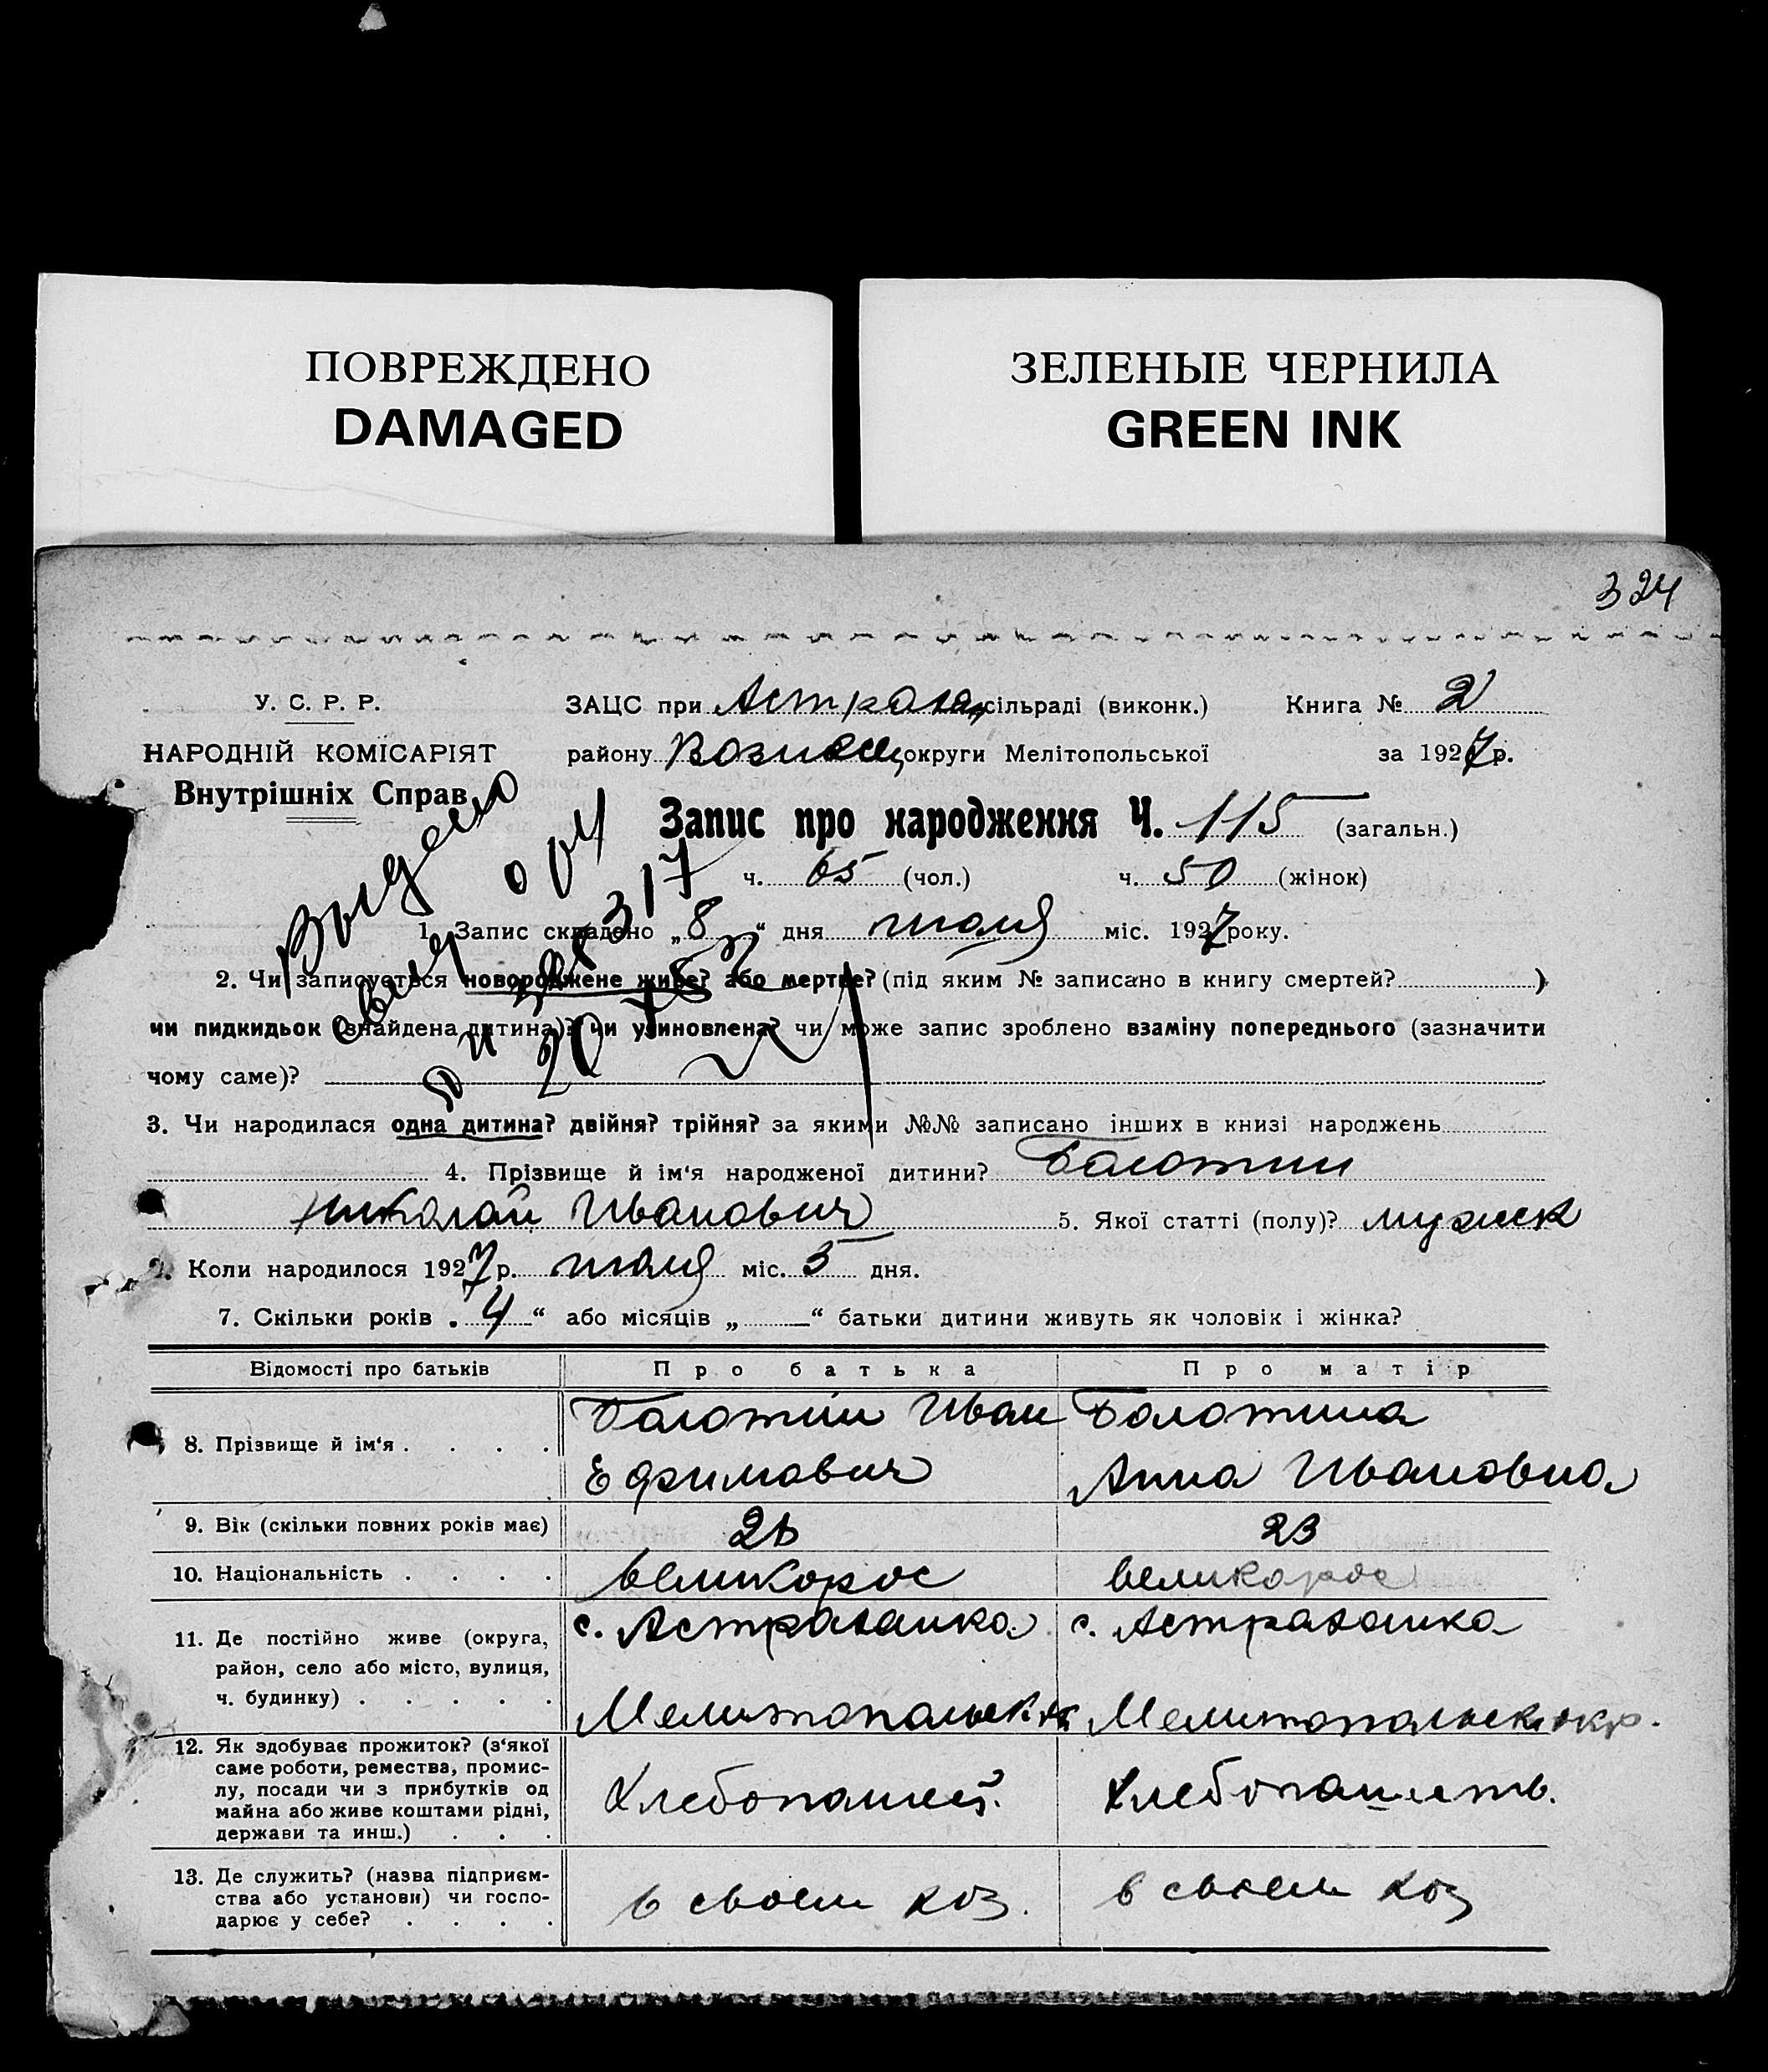 ПОВРЕЖДЕНО
DAMAGED
ЗЕЛЕНЫЕ ЧЕРНИЛА
GREEN INK
324
У. С. Р. Р.
НАРОДНІЙ КОМІСАРІЯТ
Внутрішніх Справ
ЗАЦС при Астрахан сільраді (виконк.) Книга № 2
району Вознесен округи Мелітопольської за 1927 р.
Запис про народження Ч. 115 (загальн.)
ч. 65 (чол.) ч. 50 (жінок)
Выдано
1. Запис складено „8“ дня июля міс. 1927 року.
2. Чи записується новороджене живе? або мертве? (під яким № записано в книгу смертей? )
чи пидкидьок (знайдена дитина)? чи усиновлена? чи може запис зроблено взаміну попереднього (зазначити
чому саме)?
3. Чи народилася одна дитина? двійня? трійня? за якими №№ записано інших в книзі народжень
4. Прізвище й ім‘я народженої дитини? Болотин
Николай Иванович 5. Якої статті (полу)? мужск
Коли народилося 1927 р. июля міс. 5 дня.
7. Скільки років „4“ або місяців „ “ батьки дитини живуть як чоловік і жінка?
Відомості про батьків Про батька Про матір
8. Прізвище й ім‘я . . . . Болотин Иван Болотина
Ефимович Анна Ивановна
9. Вік (скільки повних років має) 23
10. Національність . . . . великорос великорос
11. Де постійно живе (округа, район, село або місто, вулиця, ч. будинку) . . . . . с. Астраханка с. Астраханка
Мелитопольск Мелитопольск окр.
12. Як здобуває прожиток? (з‘якої саме роботи, ремества, промислу, посади чи з прибутків од майна або живе коштами рідні, держави та инш.) . . . Хлебопашец. Хлебопашеств.
13. Де служить? (назва підприємства або установи) чи господарює у себе? . . . . в своем хоз. в своем хоз